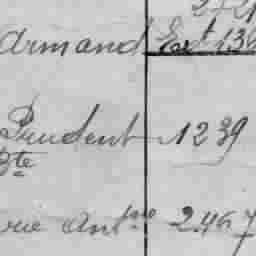 Armand Ext 136
Prudent 1239
Bte
rue Ant 2467